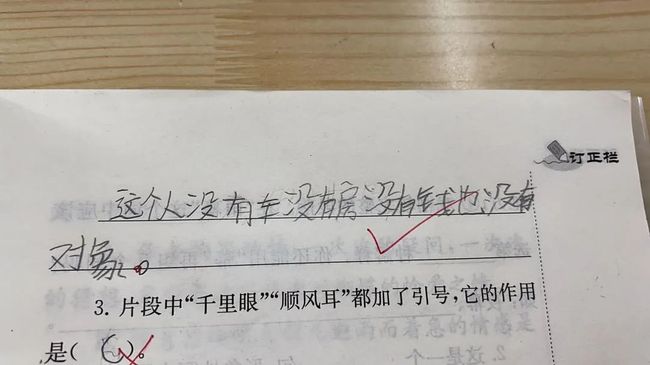 订正栏
这个人没有车没有房没有钱也没有
对象。
3. 片段中“千里眼”“顺风耳”都加了引号,它的作用
是( C )。